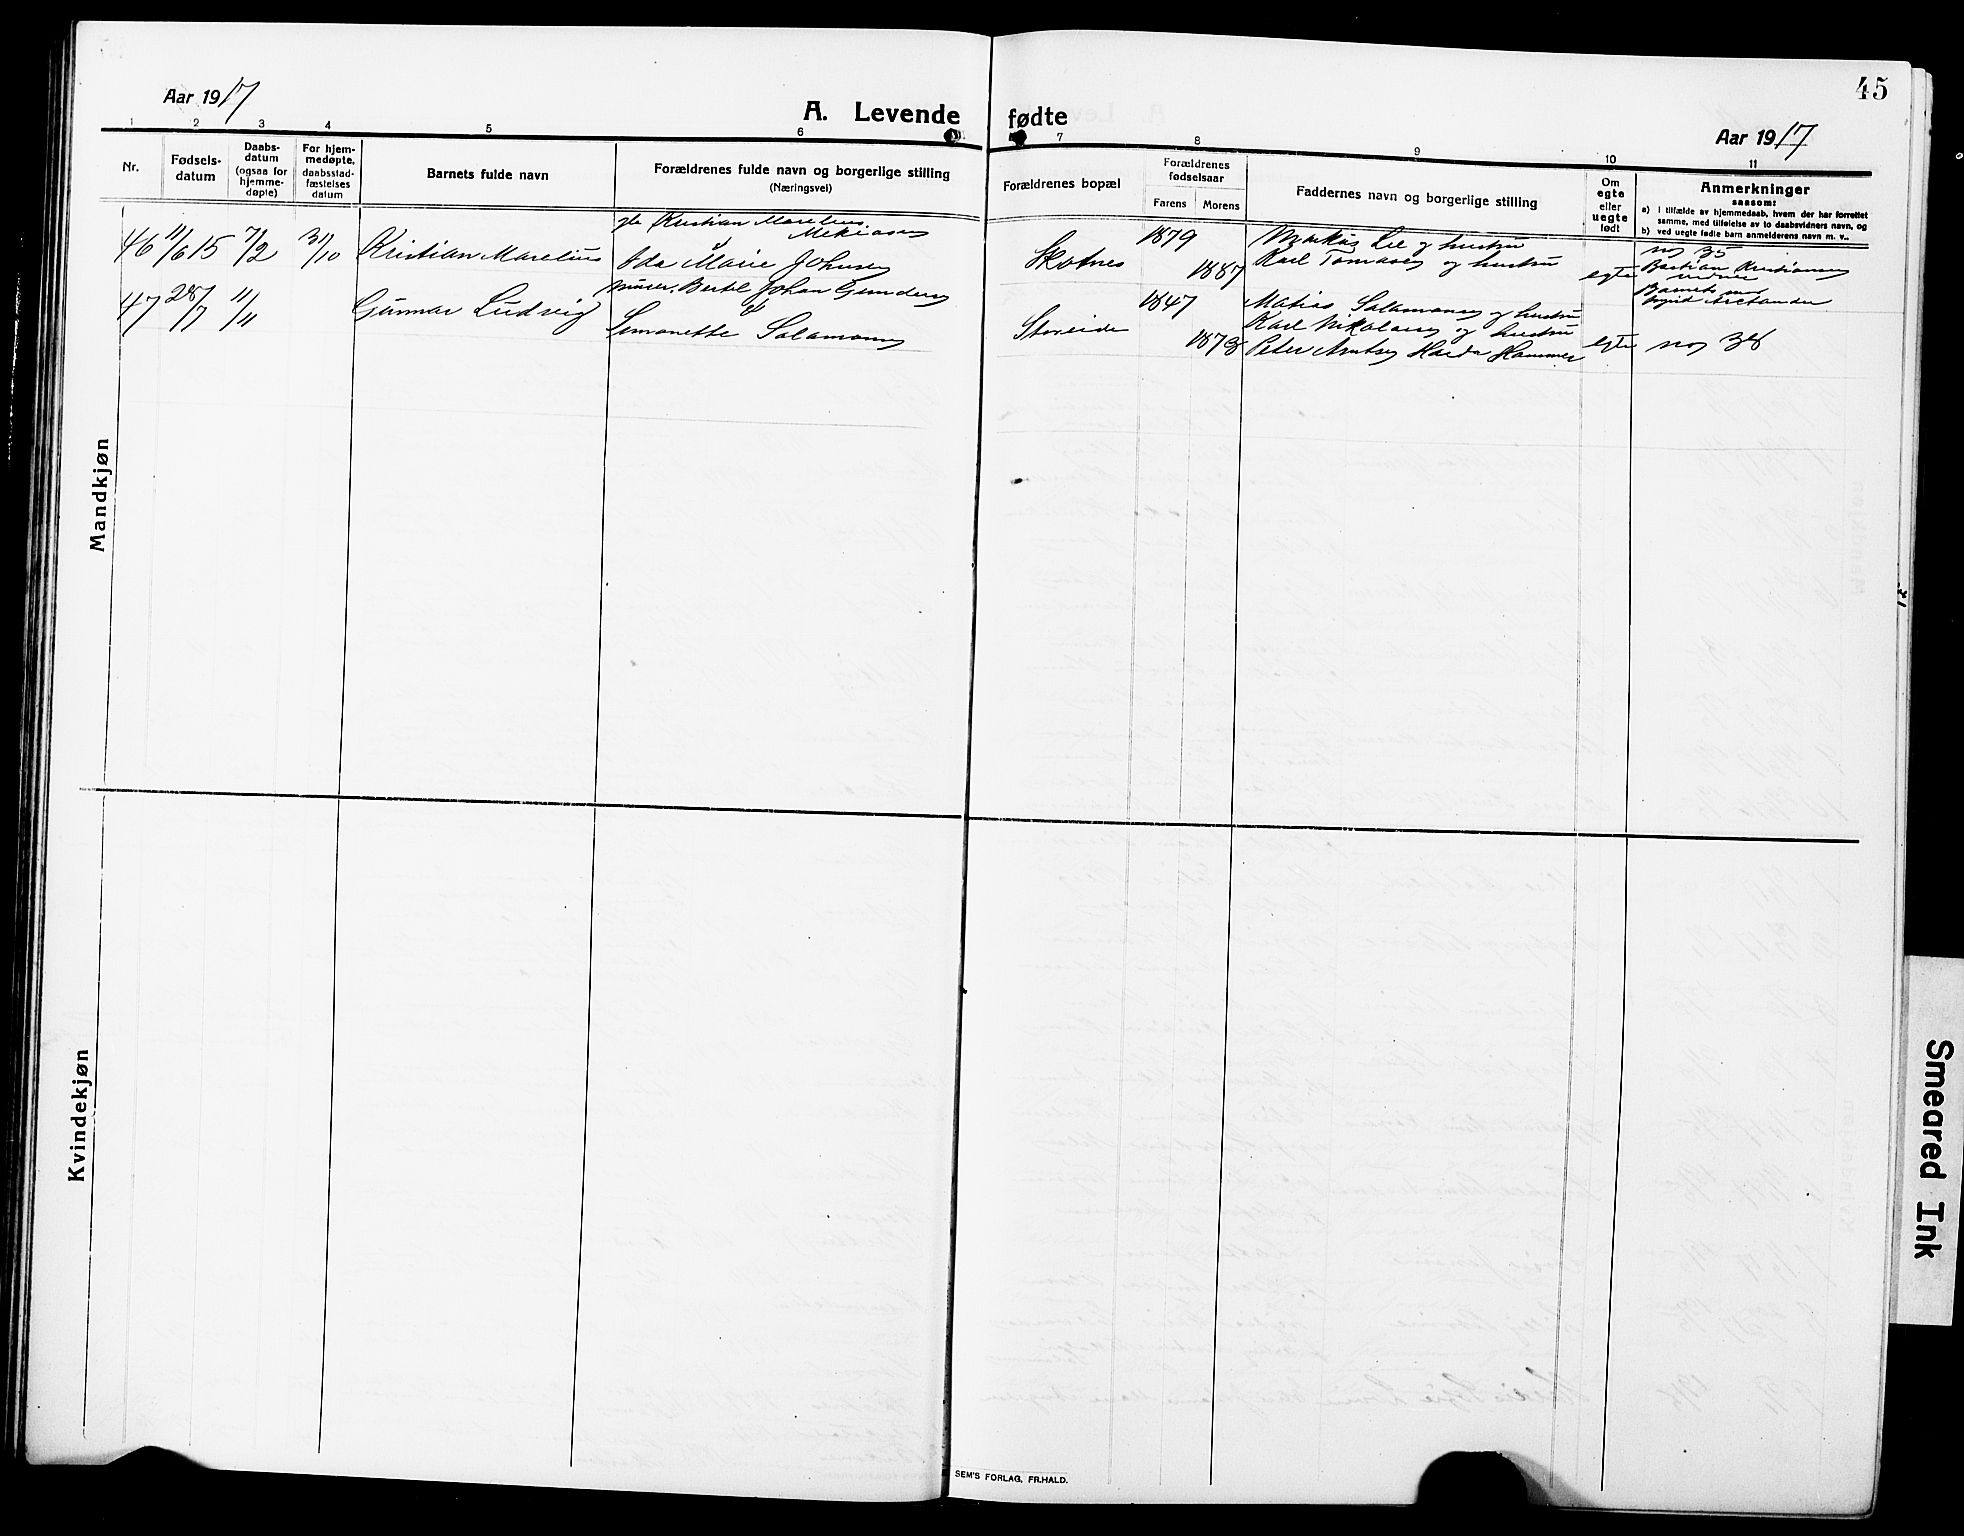 45
Aar 1917
A. Levende fødte
Aar 1917
1 2 3 4 5 6 7 8 9 10 11
Nr.
Fødsels-
datum
Daabs-
datum
(ogsaa for
hjemme-
døpte)
For hjem-
medøpte,
daabsstad-
fæstelses
datum
Barnets fulde navn
Forældrenes fulde navn og borgerlige stilling
(Næringsvei)
Forældrenes bopæl
Forældrenes
fødselsaar
Farens Morens
Faddernes navn og borgerlige stilling
Om
egte
eller
uegte
født
Anmerkninger
saasom:
a) i tilfælde av hjemmedaab, hvem der har forrettet
samme, med tilføielse av to daabsvidners navn, og
b) ved uegte fødte barn anmelderens navn m. v..
Mandkjøn
46 11/6 15 7/2 31/10 Kristian Marelius
Kristian Marelius
Mekiasen
Ida Marie Johnsen
Skotnes
1879
1887
Lee og hustru
Karl Tomasen og hustru
egte
noj 35
Bastian Kristiansen
Barnets
47 28/7 11/11 Gunnar Ludvig
Bertel Johan Gundersen
Simonette Salamonsen
Storeide
1847
1878
Matias Salamonsen og hustru
Karl Nikolaisen og hustru
Peter Arntsen Hammer
egte
noj 38
Kvindekjøn
SEM'S FORLAG, FR.HALD.
Smeared Ink